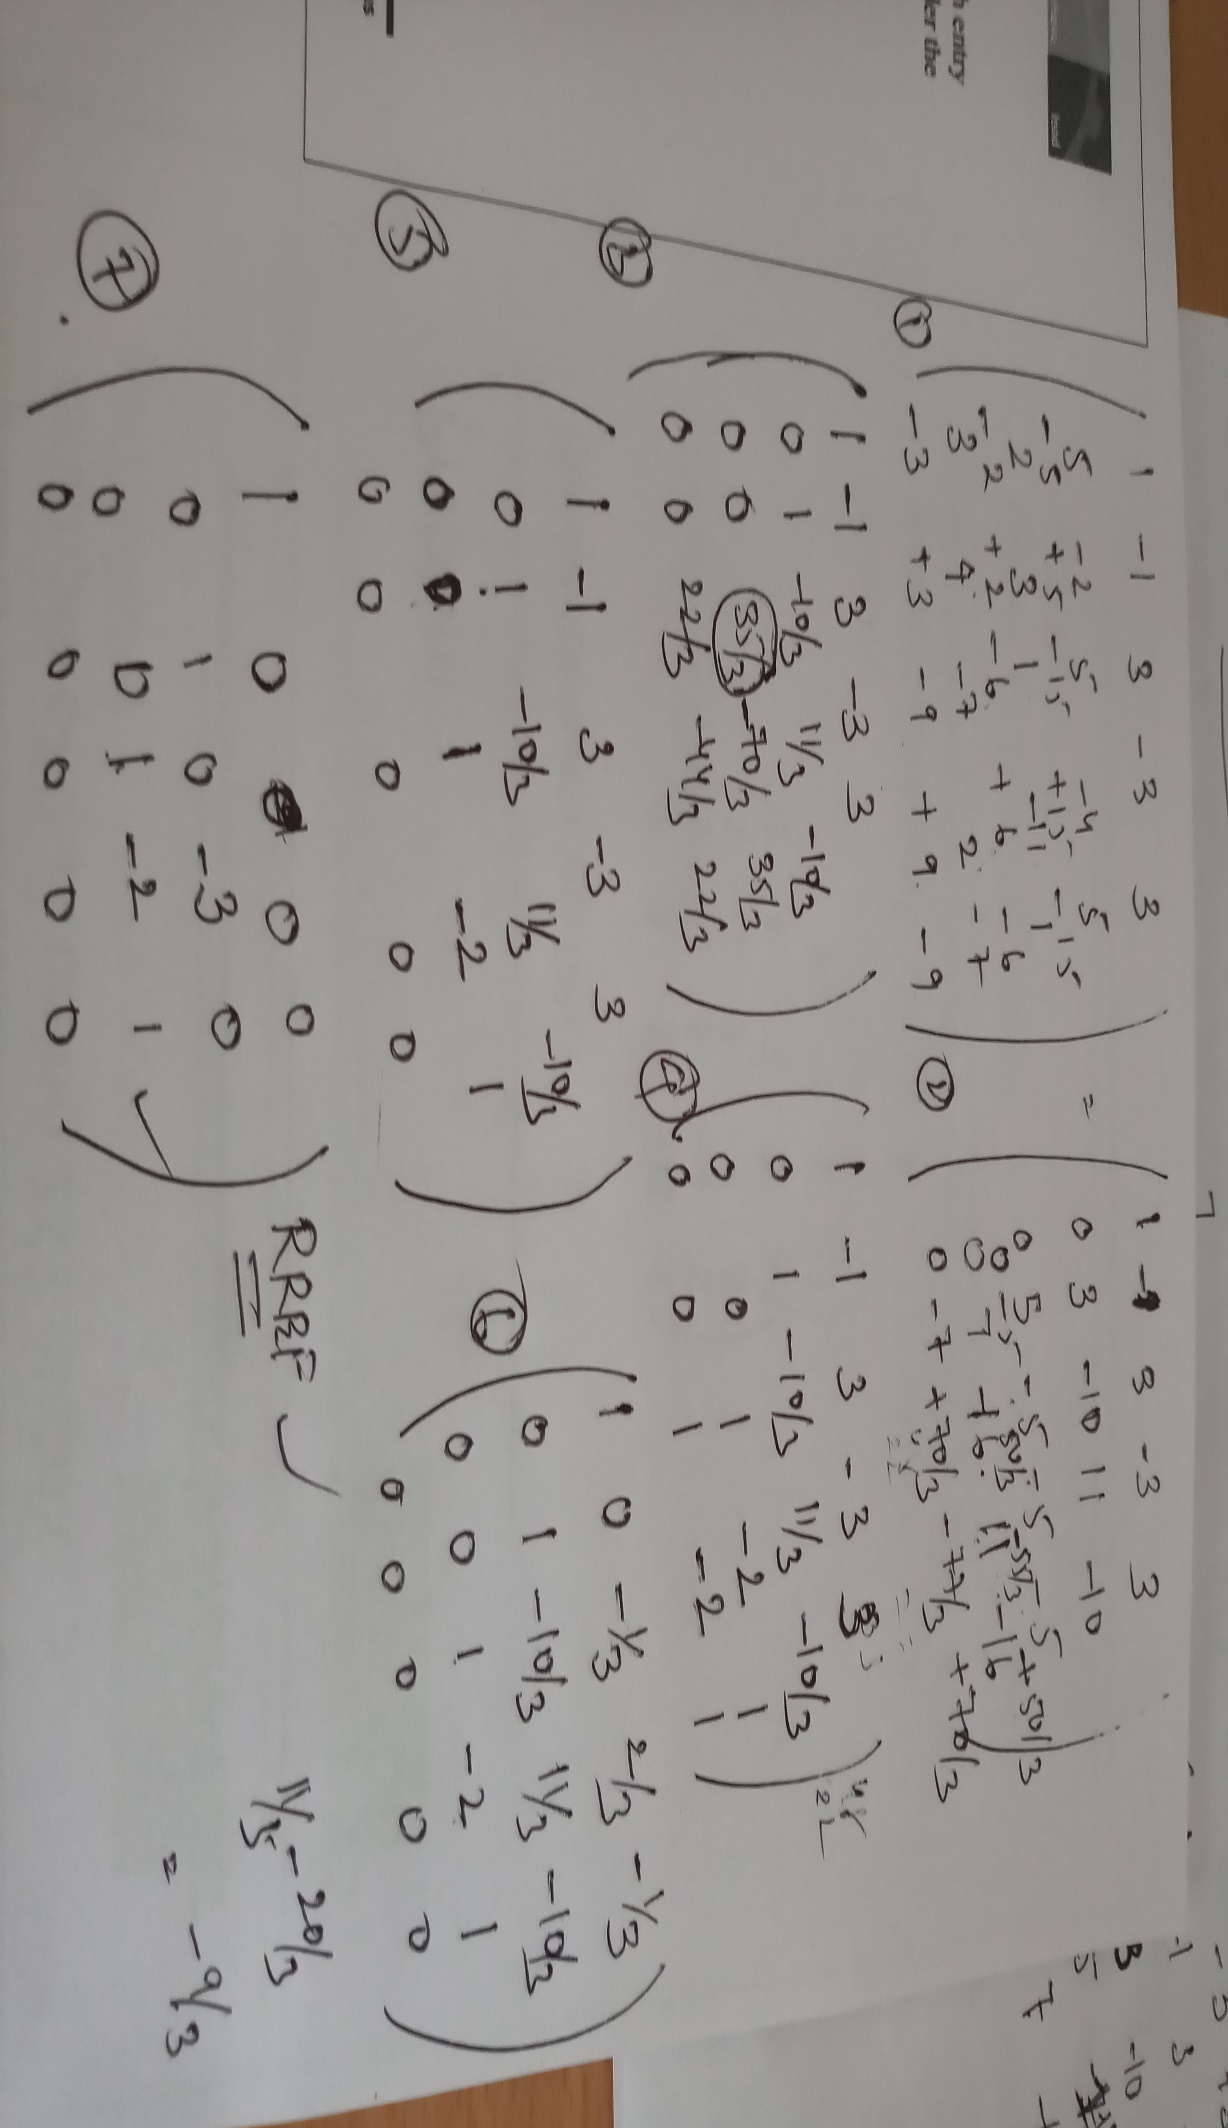 h entry
ler the
①
1 -1 3 -3 3
5 -2 5 -4 5
-5 +5 -15 +15 -15
2 3 1 -11 -1
-2 +2 -6 +6 -6
3 4 -7 2 -7
-3 +3 -9 +9 -9
=
②
1 -1 3 -3 3
0 3 -10 11 -10
0 5-5 -5+50/3 -5-55/3 -5+50/3
0 7 -16 11 -16
0 -7 +70/3 -77/3 +70/3
③
1 -1 3 -3 3
0 1 -10/3 11/3 -10/3
0 0 35/3 -70/3 35/3
0 0 22/3 -44/3 22/3
④
1 -1 3 -3 3
0 1 -10/3 11/3 -10/3
0 0 1 -2 1
0 0 1 -2 1
⑤
1 -1 3 -3 3
0 1 -10/3 11/3 -10/3
0 0 1 -2 1
0 0 0 0 0
⑥
1 0 -1/3 2/3 -1/3
0 1 -10/3 11/3 -10/3
0 0 1 -2 1
0 0 0 0 0
⑦
1 0 0 0 0
0 1 0 -3 0
0 0 1 -2 1
0 0 0 0 0
RREF
11/3 - 20/3
= -9/3